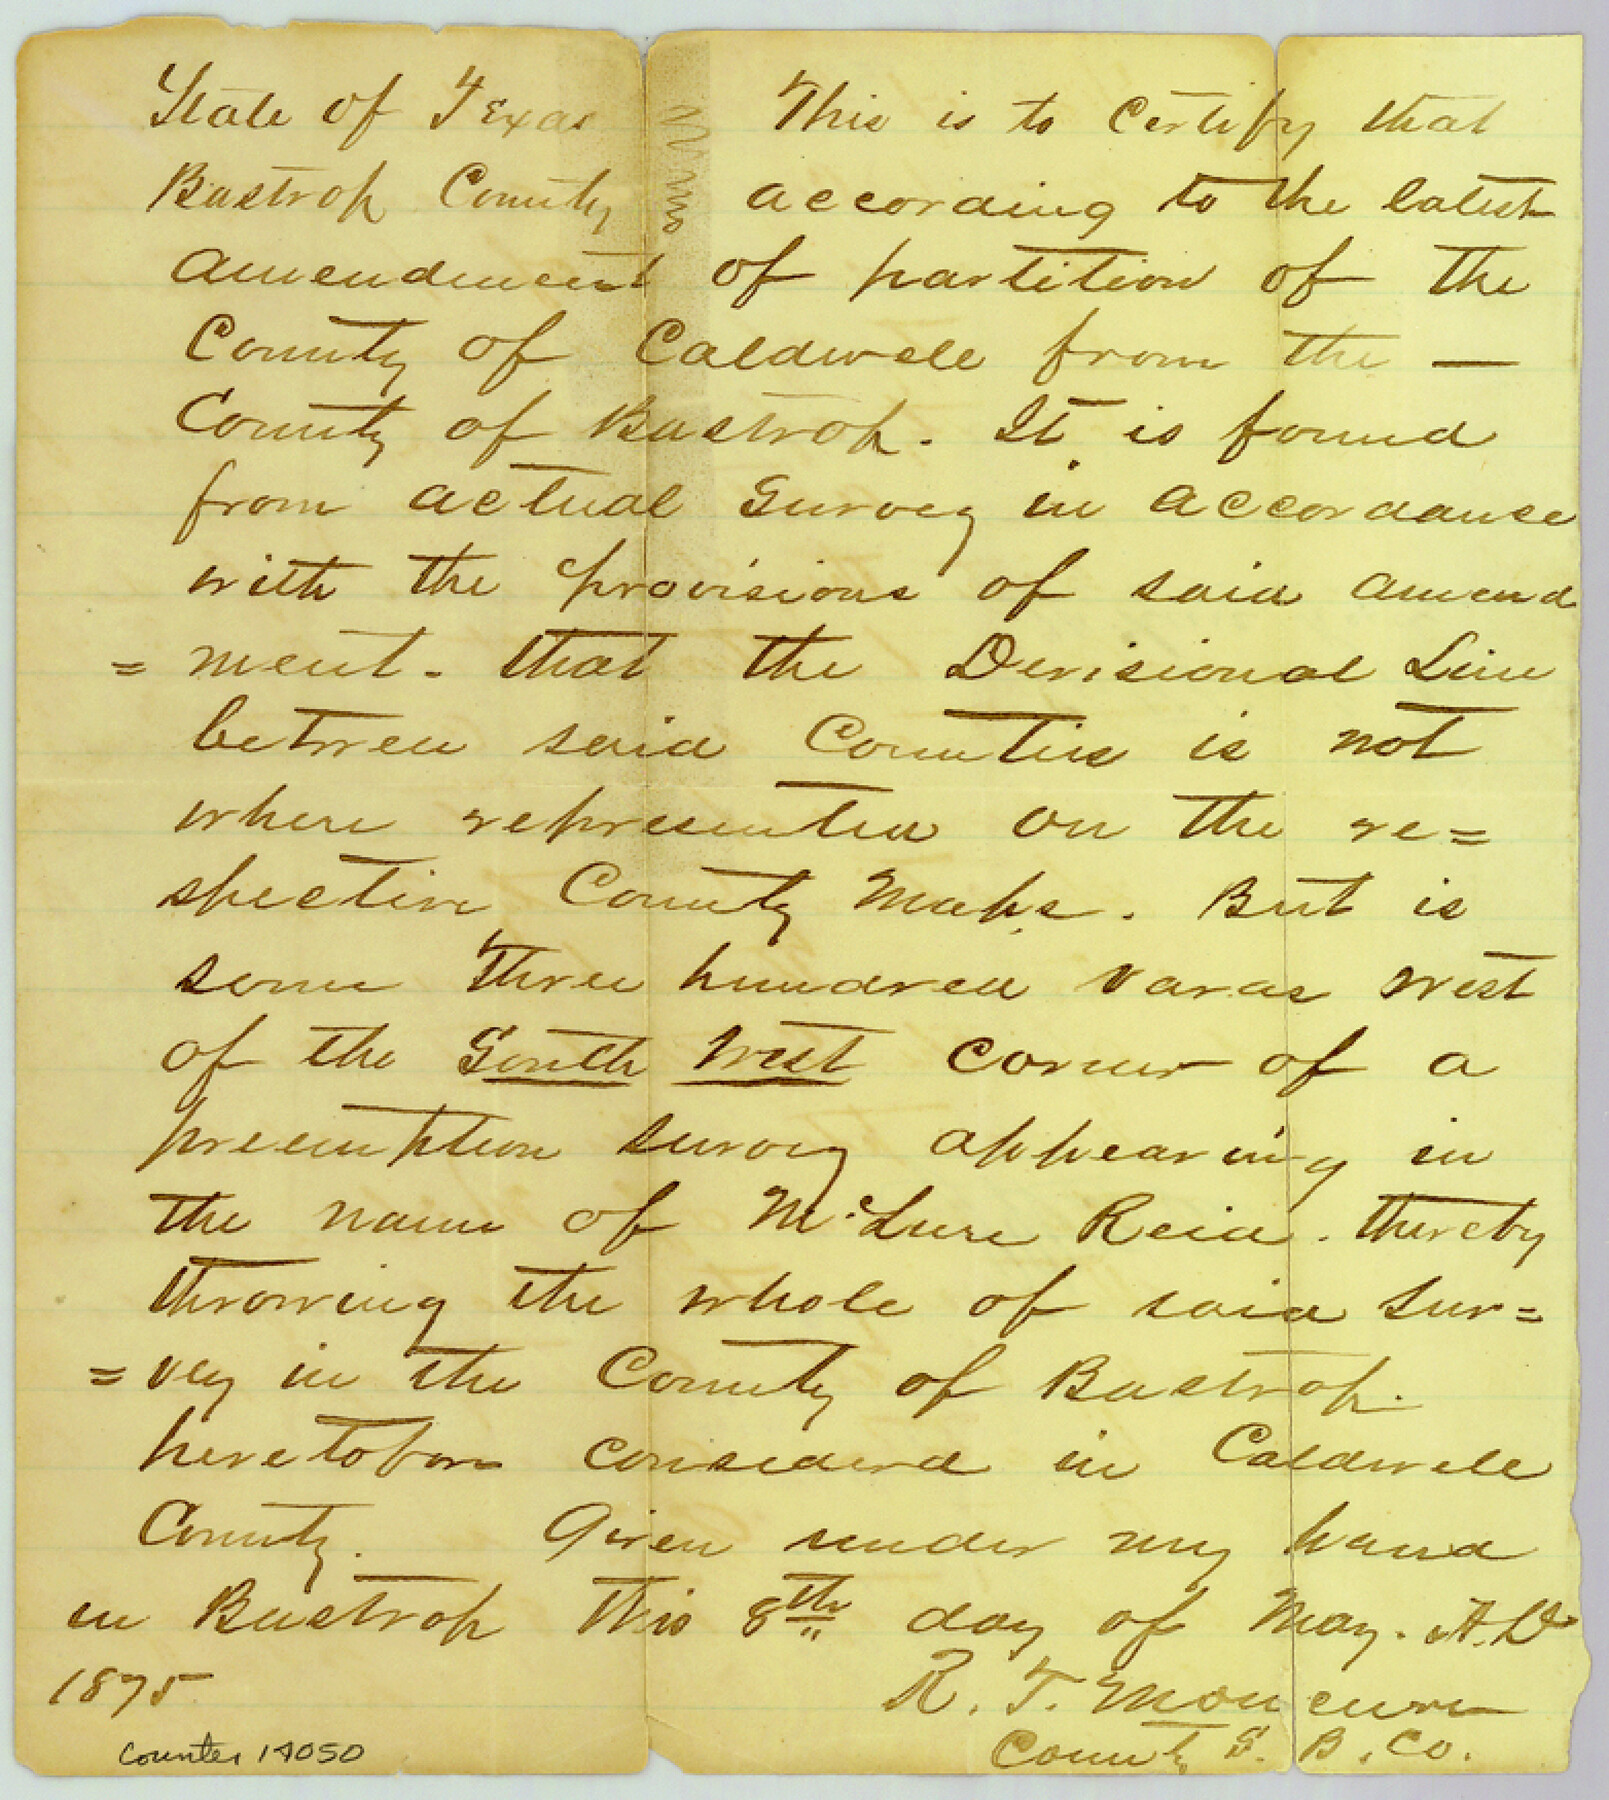 State of Texas This is to Certify that
Bastrop County according to the latest
amendment of partition of the
County of Caldwell from the —
County of Bastrop. It is found
from actual Survey in accordance
with the provisions of said amend
= ment. that the Devisional Line
between said Counties is not
where represented on the re=
spective County Maps. But is
some three hundred varas west
of the South West corner of a
preemption survey appearing in
the name of McLure Reid. thereby
throwing the whole of said sur=
=vey in the County of Bastrop.
heretofore considerd in Caldwell
County. Given under my hand
in Bastrop this 8th day of May. A.D
1875
R. T. Moncure
County S. B. Co.
Counter 14050